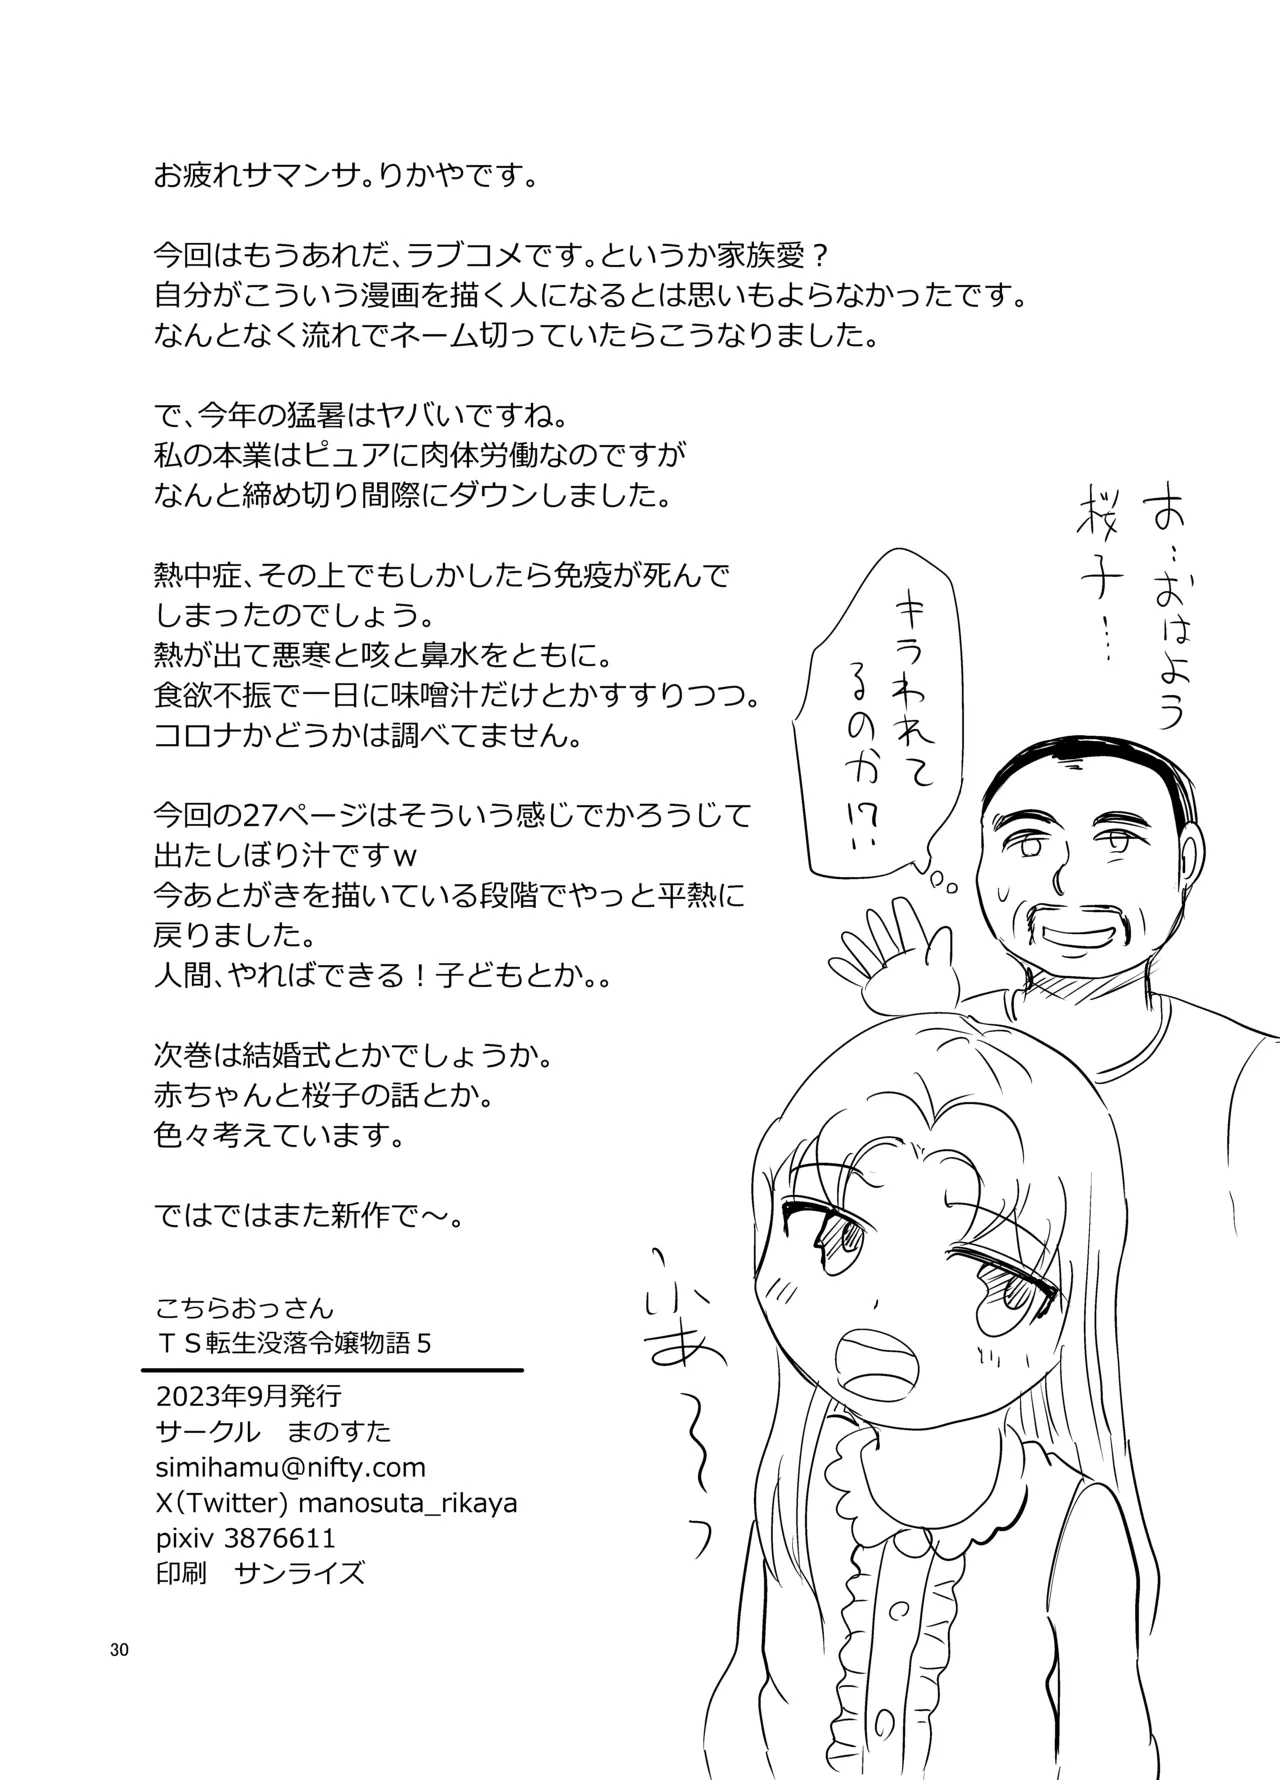 お疲れサマンサ。りかやです。
今回はもうあれだ、ラブコメです。というか家族愛？
自分がこういう漫画を描く人になるとは思いもよらなかったです。
なんとなく流れでネーム切っていたらこうなりました。
で、今年の猛暑はヤバいですね。
私の本業はピュアに肉体労働なのですが
なんと締め切り間際にダウンしました。
熱中症、その上でもしかしたら免疫が死んで
しまったのでしょう。
熱が出て悪寒と咳と鼻水をともに。
食欲不振で一日に味噌汁だけとかすすりつつ。
コロナかどうかは調べてません。
今回の27ページはそういう感じでかろうじて
出たしぼり汁ですｗ
今あとがきを描いている段階でやっと平熱に
戻りました。
人間、やればできる！子どもとか。。
次巻は結婚式とかでしょうか。
赤ちゃんと桜子の話とか。
色々考えています。
ではではまた新作で～。
お…おはよう
桜子……
キラわれて
るのか!?
ふあ～～っ
こちらおっさん
ＴＳ転生没落令嬢物語５
2023年9月発行
サークル　まのすた
simihamu@nifty.com
X（Twitter) manosuta_rikaya
pixiv 3876611
印刷　サンライズ
30